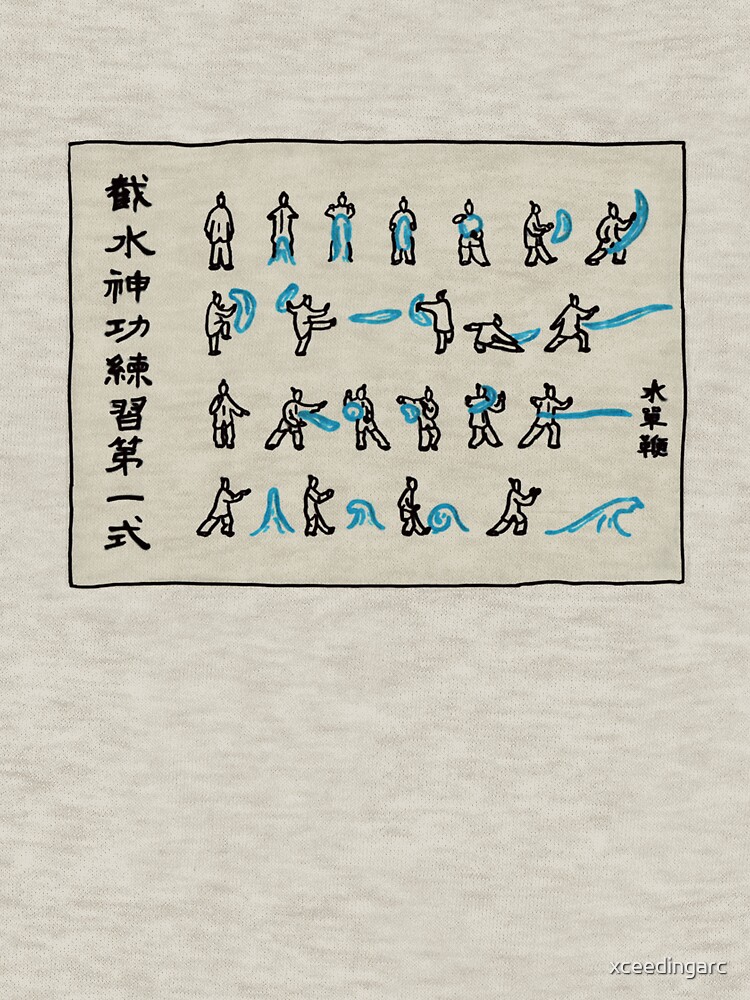 截水神功練習第一式
水單鞭
xceedingarc